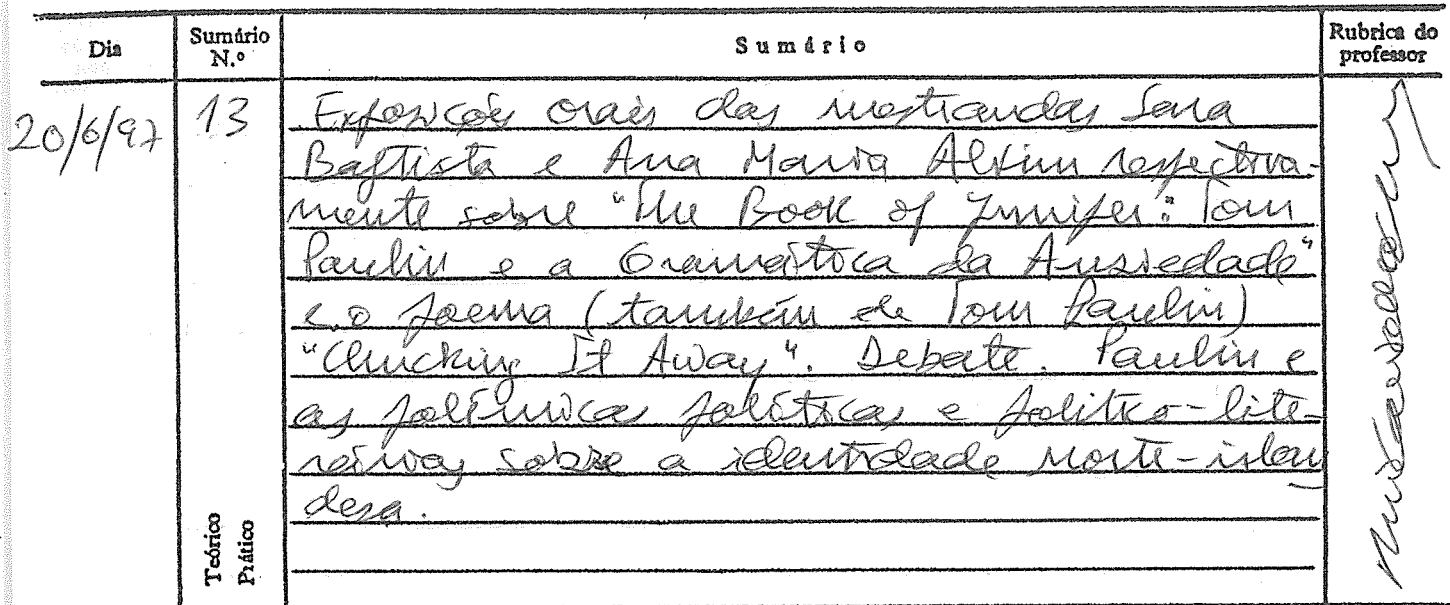 Dia Sumário N.º Sumário Rubrica do professor
20/6/97 13 Exposições orais das mestrandas Sara
Baptista e Ana Maria Alvim respectiva-
mente sobre "The Book of Juniper: Tom
Paulin e a Gramática da Ansiedade"
e o poema (também de Tom Paulin)
"Chucking It Away". Debate. Paulin e
as polémicas políticas e politico-lite-
rárias sobre a identidade norte-irlan
desa.
Teórico
Prático